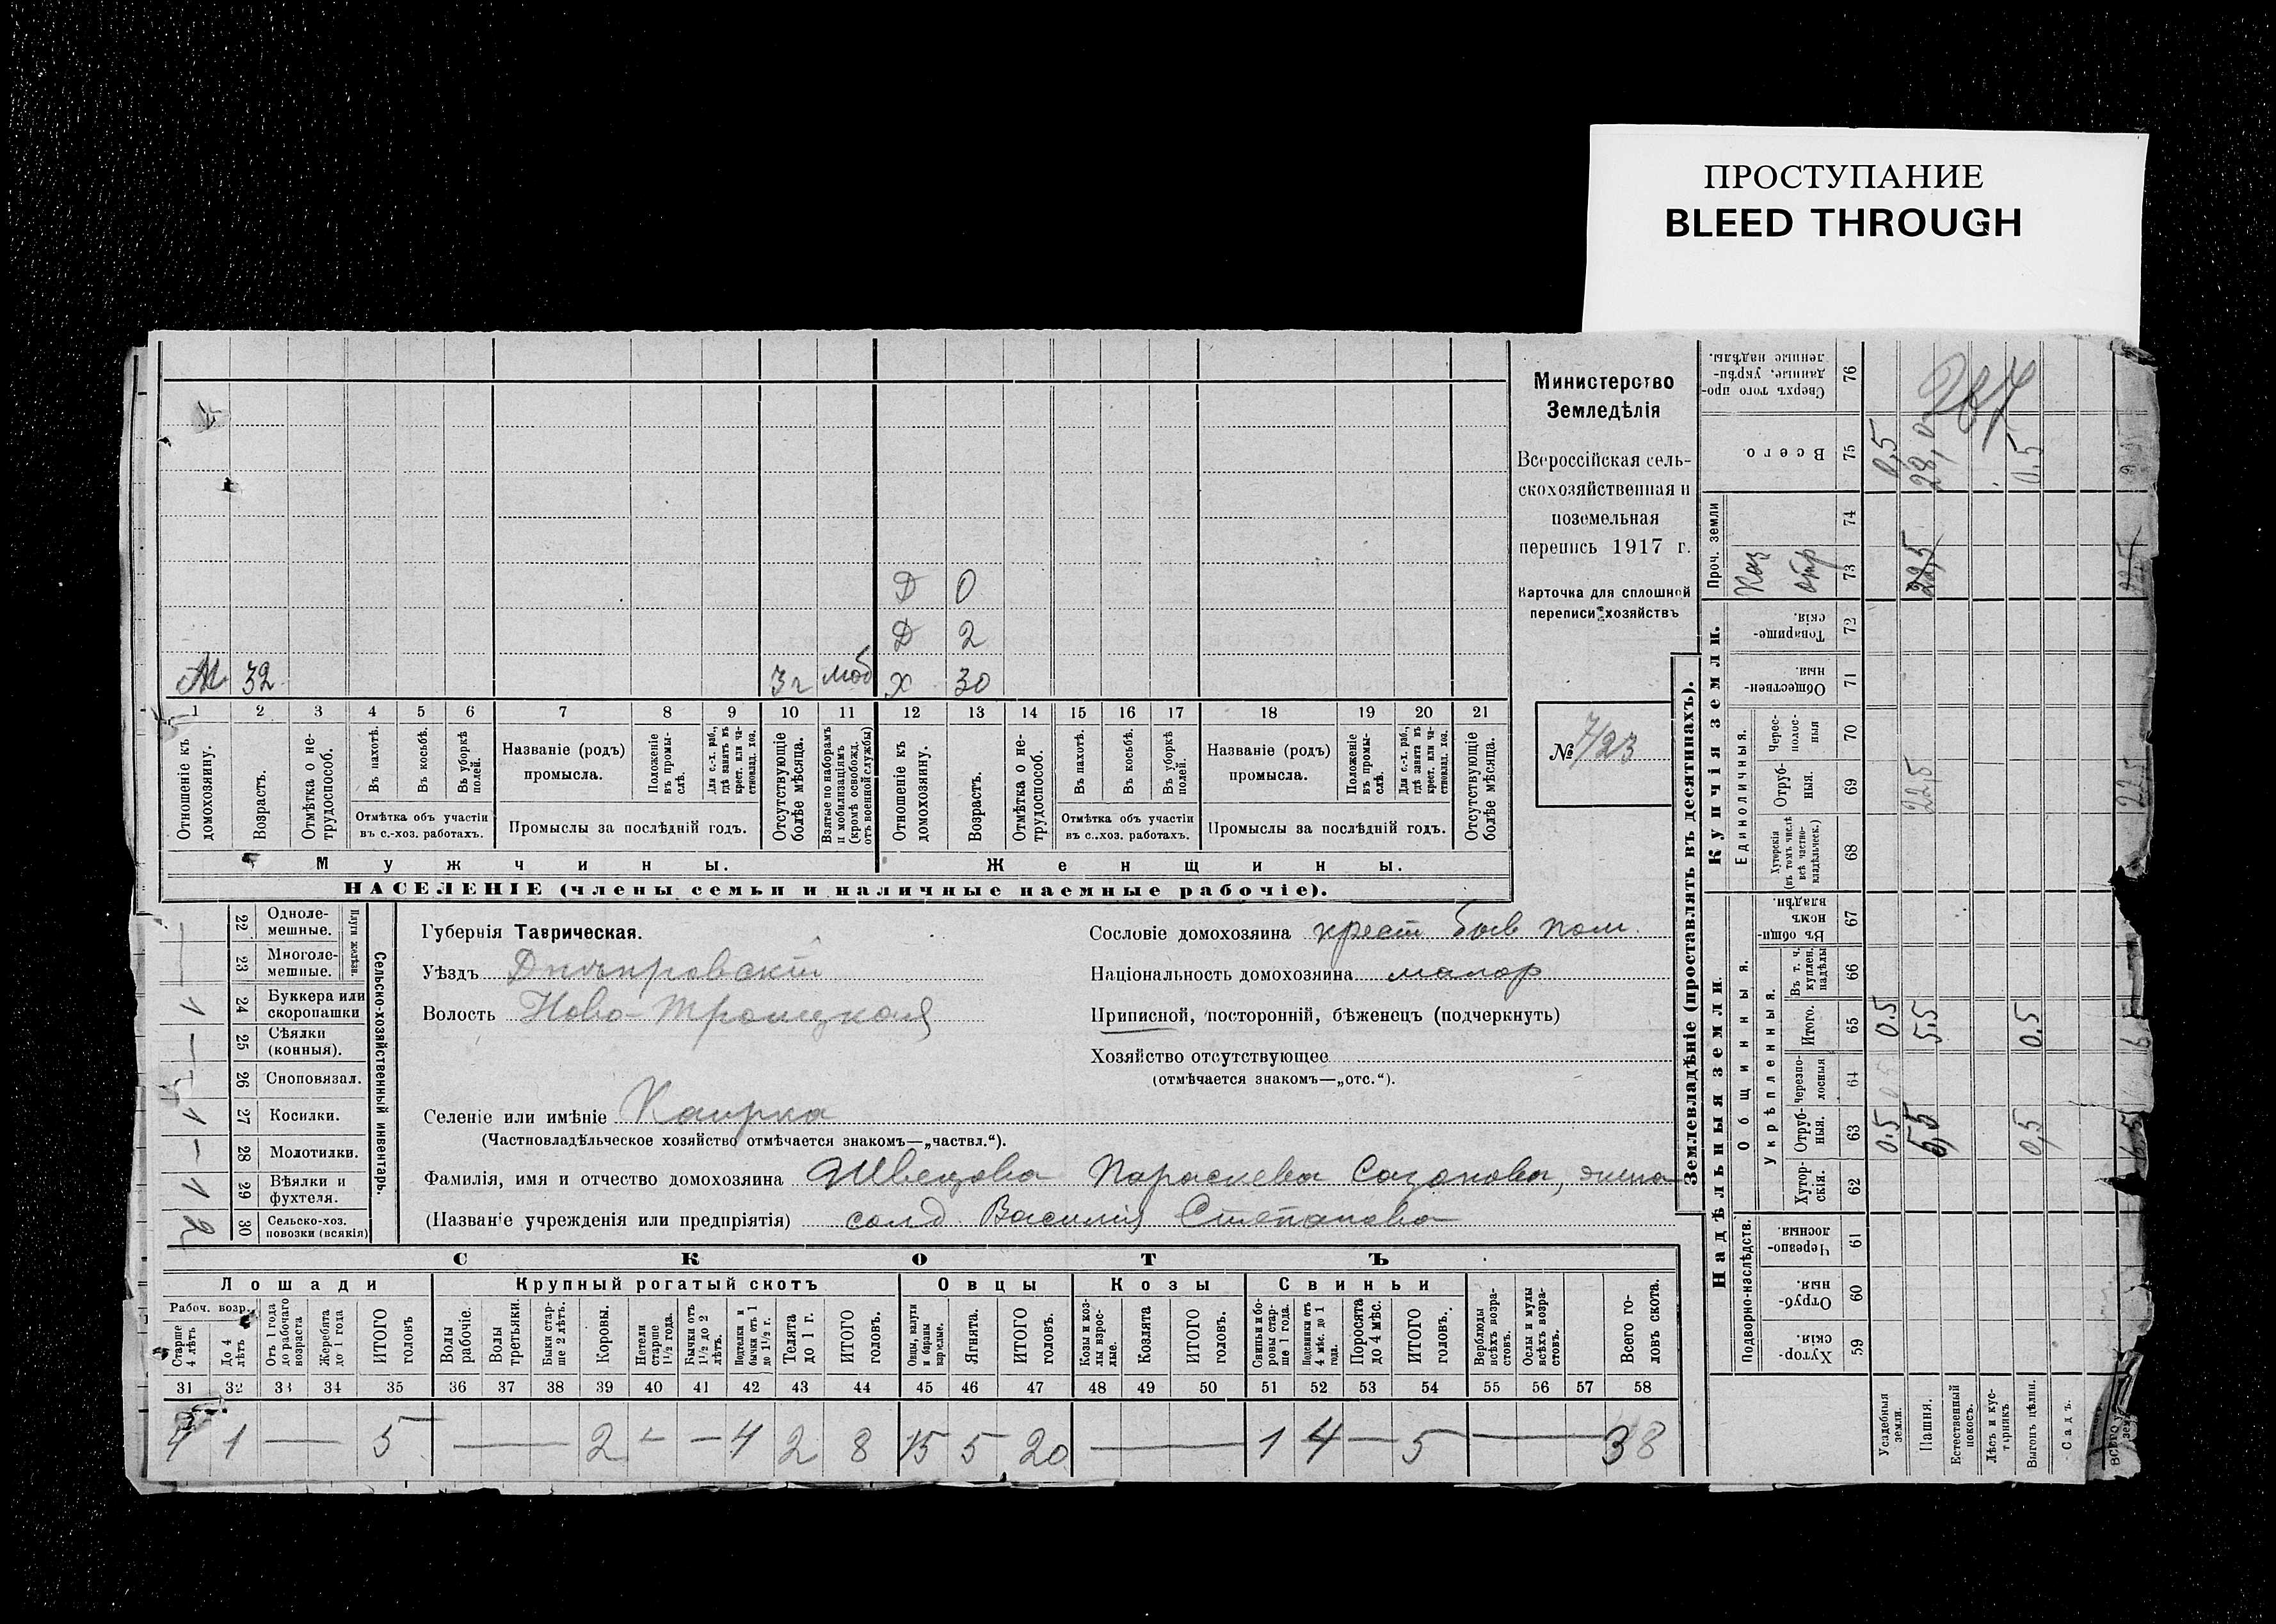 ПРОСТУПАНИЕ
BLEED THROUGH
Министерство
Земледѣлія
Всероссійская сель-
скохозяйственная и
поземельная
перепись 1917 г.
Карточка для сплошной
переписи хозяйствъ
№ 7/23
Д 0
Д 2
М 32 3 г моб Х 30
1 2 3 4 5 6 7 8 9 10 11 12 13 14 15 16 17 18 19 20 21
Отношеніе къ домохозяину.
Возрастъ.
Отмѣтка о не-трудоспособ.
Въ пахотѣ.
Въ косьбѣ.
Въ уборкѣ полей.
Отмѣтка объ участіи
въ с.-хоз. работахъ.
Названіе (родъ)
промысла.
Положеніе въ промы-слѣ.
Для с.-х. раб., гдѣ занятъ въ крест. или ча-стновлад. хоз.
Промыслы за послѣдній годъ.
Отсутствующіе болѣе мѣсяца.
Взятые по наборамъ и мобилизаціямъ (кромѣ освобожд. отъ военной службы)
Отношеніе къ домохозяину.
Возрастъ.
Отмѣтка о не-трудоспособ.
Въ пахотѣ.
Въ косьбѣ.
Въ уборкѣ полей.
Отмѣтка объ участіи
въ с..хоз. работахъ.
Названіе (родъ)
промысла.
Положеніе въ промы-слѣ.
Для с.-х. раб., гдѣ занятъ въ крест. или ча-стновлад. хоз.
Промыслы за послѣдній годъ.
Отсутствующіе болѣе мѣсяца.
Мужчины. Женщины.
НАСЕЛЕНІЕ (члены семьи и наличные наемные рабочіе).
Сельско-хозяйственный инвентарь.
Плуги желѣзн.
22 Одноле-мешные.
23 Многоле-мешные.
1 24 Буккера или скоропашки
25 Сѣялки (конныя).
26 Сноповязал.
1 27 Косилки.
28 Молотилки.
1 29 Вѣялки и фухтеля.
2 30 Сельско-хоз. повозки (всякія)
Губернія Таврическая.
Уѣздъ Днѣпровскій
Волость Ново-Троицкая
Селеніе или имѣніе Каирка
(Частновладѣльческое хозяйство отмѣчается знакомъ—„частвл.“).
Фамилія, имя и отчество домохозяина Швецова Параскева Сазонова, жена
(Названіе учрежденія или предпріятія) солд. Василія Степанова
Сословіе домохозяина крест быв пом.
Національность домохозяина малор
Приписной, посторонній, бѣженецъ (подчеркнуть)
Хозяйство отсутствующее
(отмѣчается знакомъ—„отс.“).
СКОТЪ
Лошади Крупный рогатый скотъ Овцы Козы Свиньи
Рабоч. возр.
Старше 4 лѣтъ
До 4 лѣтъ
Отъ 1 года до рабочаго возраста
Жеребята до 1 года
ИТОГО головъ
Волы рабочіе.
Волы третьяки.
Быки стар-ше 2 лѣтъ.
Коровы.
Нетели старше 1½ года.
Бычки отъ 1½ до 2 лѣтъ.
Подтелки и бычки отъ 1 до 1½ г.
Телята до 1 г.
ИТОГО головъ.
Овцы, валухи и бараны взрослые.
Ягнята.
ИТОГО головъ.
Козы и коз-лы взрос-лые.
Козлята
ИТОГО головъ.
Свиньи и бо-ровы стар-ше 1 года.
Подсвинки отъ 4 мѣс. до 1 года.
Поросята до 4 мѣс.
ИТОГО головъ.
Верблюды всѣхъ возра-стовъ.
Ослы и мулы всѣхъ возра-стовъ.
Всего го-ловъ скота.
31 32 33 34 35 36 37 38 39 40 41 42 43 44 45 46 47 48 49 50 51 52 53 54 55 56 57 58
4 1 — 5 — 2 — — 4 2 8 15 5 20 — 1 4 — 5 — 38
Землевладѣніе (проставлять въ десятинахъ).
Надѣльныя земли.
Купчія земли.
Проч. земли
Подворно-наслѣдств.
Общинныя.
Укрѣпленныя.
Единоличныя.
Хутор-скія. 59
Отруб-ныя. 60
Черезпо-лосныя 61
Хутор-скія. 62
Отруб-ныя. 63
Черезпо-лосныя 64
Итого. 65
Въ т. ч. куплен. надѣлы 66
Въ общин-номъ владѣн. 67
Хуторскія (въ томъ числѣ всѣ частно-владѣльческ.) 68
Отруб-ныя. 69
Черес-полос-ныя 70
Обществен-ныя 71
Товарище-скія 72
73
74
Всего. 75
Сверхъ того про-данные, укрѣп-ленные надѣлы. 76
Усадебныя земли. 0.5 0.5 0,5
Пашня. 5,5 5.5 22,5 22,5 28,0
Естественный покосъ.
Лѣсъ и кус-тарникъ.
Выгонъ цѣлин. 0,5 0.5 0.5
Садъ.
6.5 22,5 22,5